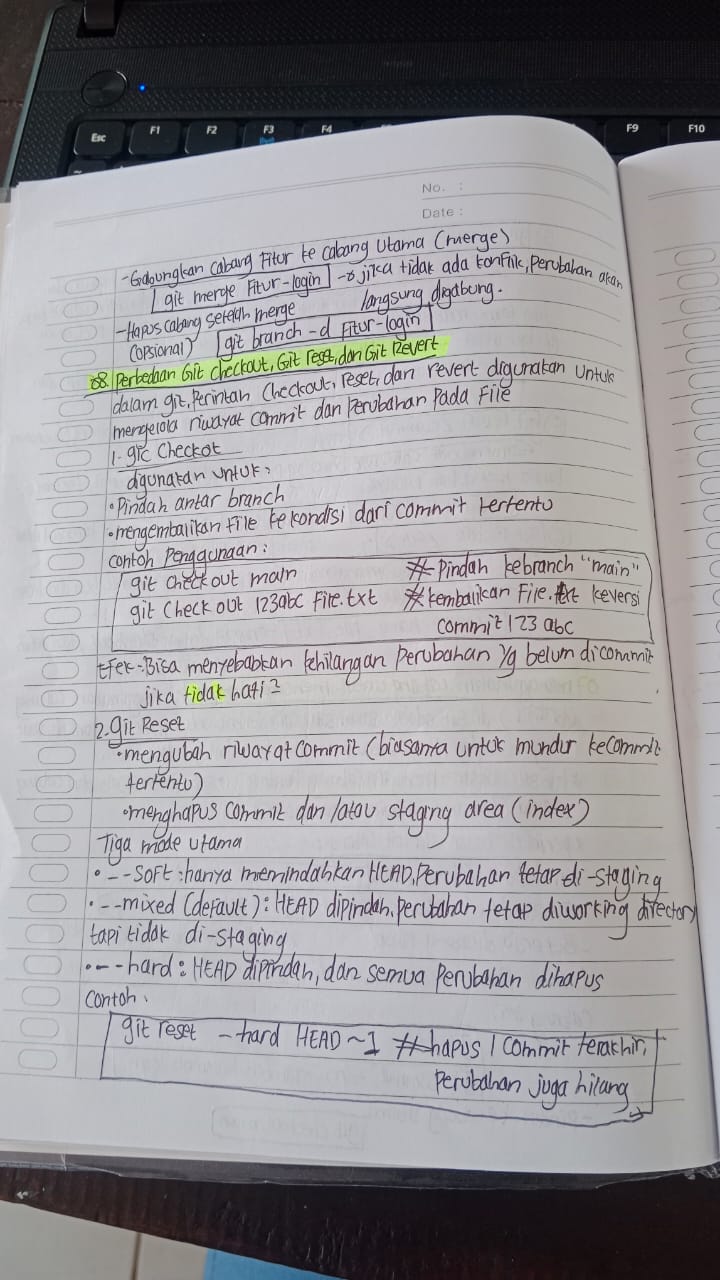 Esc F1 F2 F3 F4 F9 F10
No. :
Date :
-Gabungkan cabang Fitur ke cabang Utama (merge)
git merge Fitur-login → jika tidak ada konflik, perubahan akan
langsung digabung.
-Hapus cabang setelah merge
(opsional) git branch -d Fitur-login
68. Perbedaan Git Checkout, Git reset, dan Git Revert
dalam git, perintah Checkout, reset, dan revert digunakan untuk
mengelola riwayat commit dan perubahan pada File
1. gic Checkot
digunakan untuk:
• Pindah antar branch
• mengembalikan file ke kondisi dari commit tertento
contoh penggunaan:
git checkout main # Pindah kebranch "main"
git Check out 123abc File.txt # kembalikan File.txt keversi
commit 123 abc
Efek: Bisa menyebabkan kehilangan perubahan yg belum dicommit
jika tidak hati2
2. git Reset
• mengubah riwayat commit (biasanya untuk mundur kecommit
tertento)
• menghapus commit dan /atau staging area (index)
Tiga mode utama
• --SOFT : hanya memindahkan HEAD, Perubahan tetap di-staging
• --mixed (default): HEAD dipindah, perubahan tetap diworking directory
tapi tidak di-staging
• --hard: HEAD dipindah, dan semua perubahan dihapus
Contoh.
git reset -hard HEAD~1 # hapus 1 commit terakhir,
Perubahan juga hilang